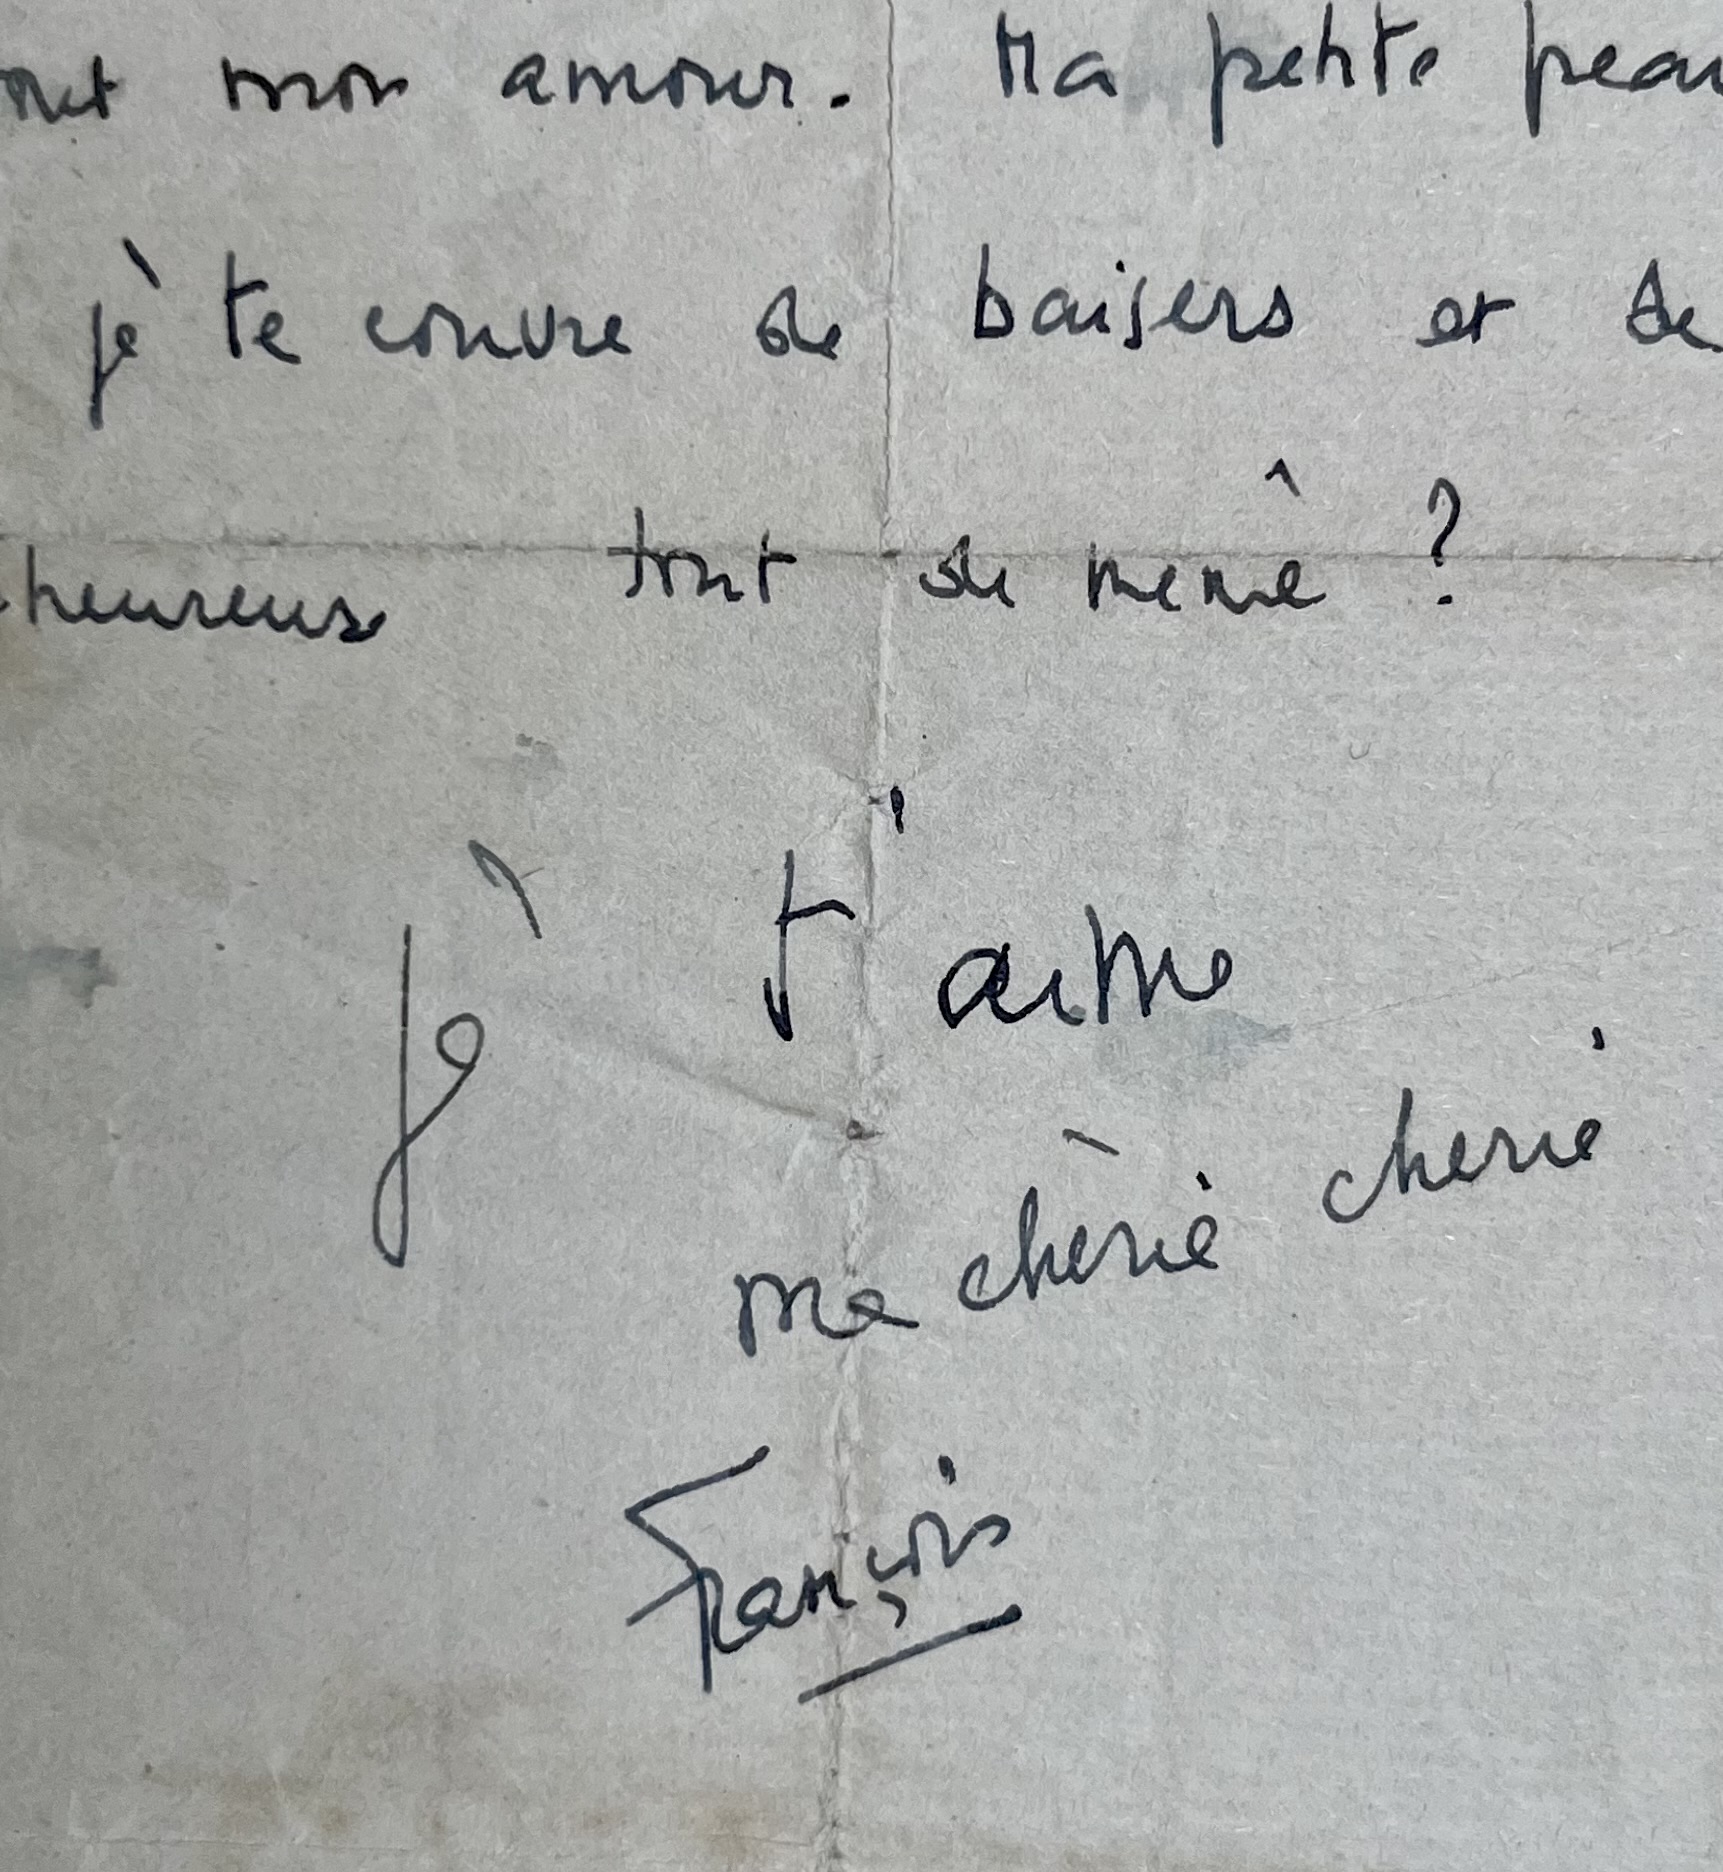 mon amour. Ma petite peau
je te couvre de baisers et de
heureux tout de même ?
Je t'aime
ma chérie chérie
François